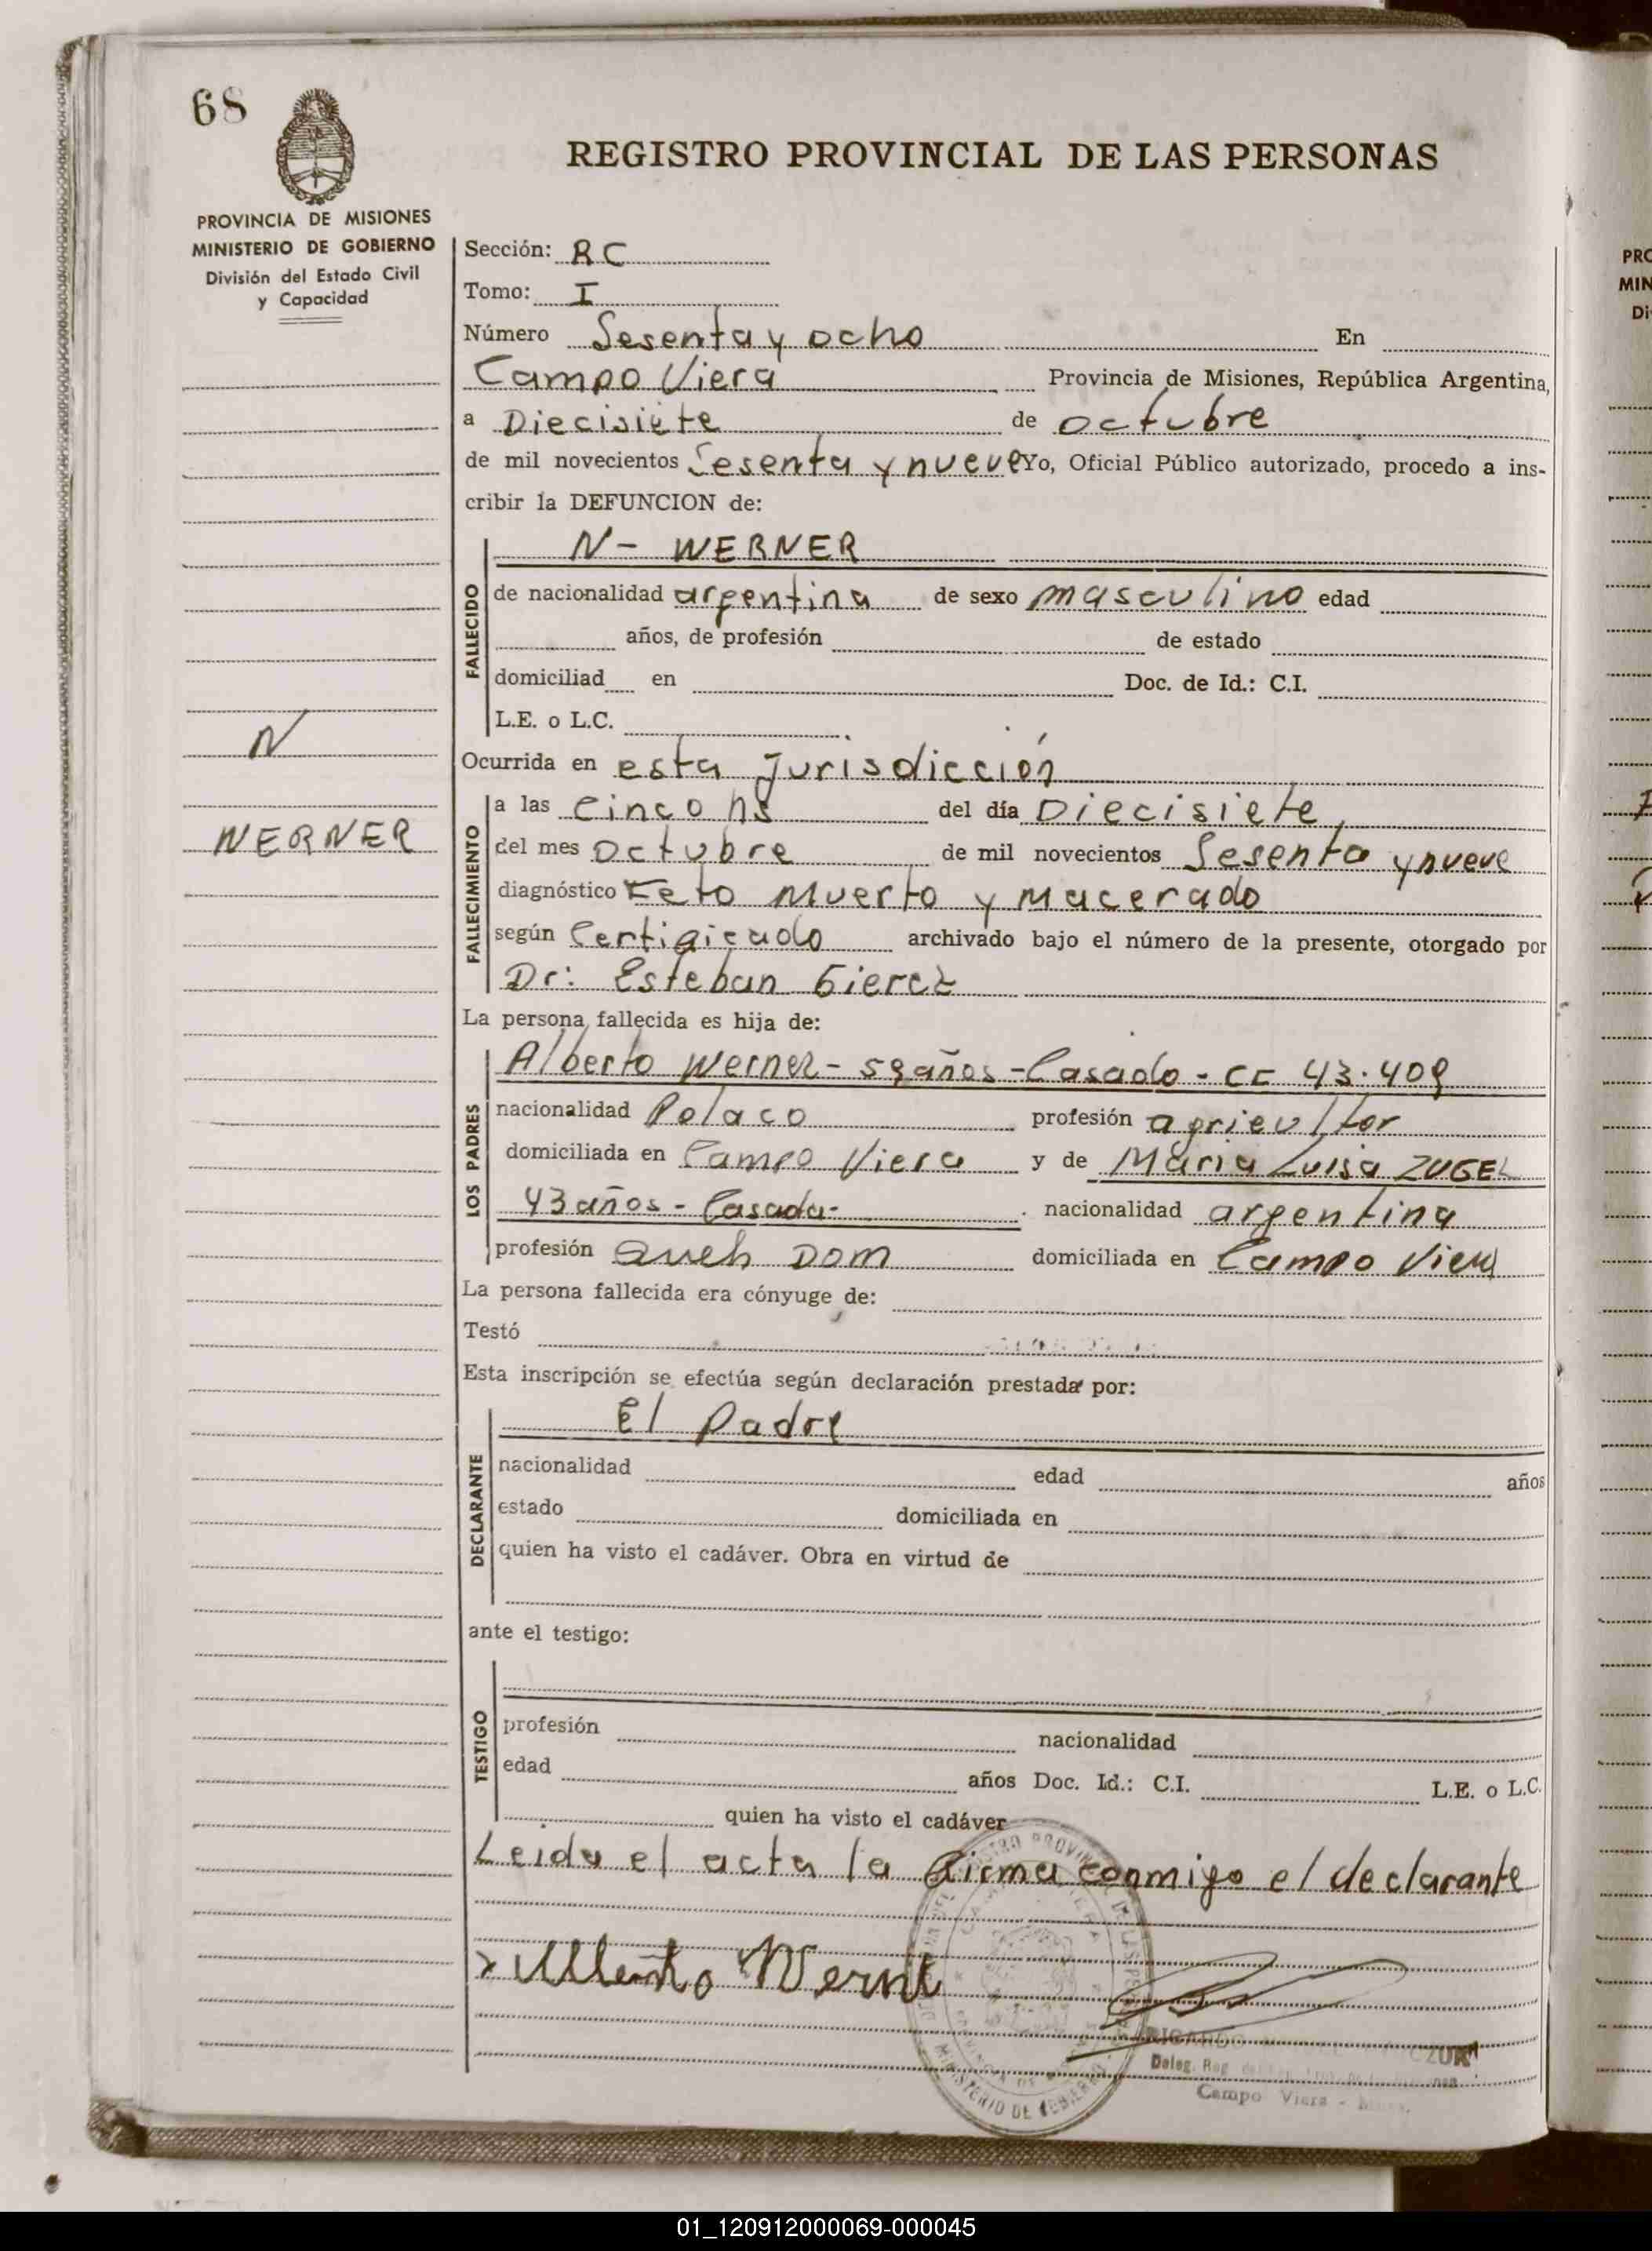 68
REGISTRO PROVINCIAL DE LAS PERSONAS
PROVINCIA DE MISIONES
MINISTERIO DE GOBIERNO
División del Estado Civil
y Capacidad
Sección: RC
Tomo: I
Número Sesenta y ocho En
Campo Viera Provincia de Misiones, República Argentina,
a Diecisiete de octubre
de mil novecientos Sesenta y nueve Yo, Oficial Público autorizado, procedo a ins-
cribir la DEFUNCION de:
N
WERNER
FALLECIDO
N - WERNER
de nacionalidad argentina de sexo masculino edad
años, de profesión de estado
domiciliad en Doc. de Id.: C.I.
L.E. o L.C.
Ocurrida en esta jurisdicción
FALLECIMIENTO
a las Cinco hs del día Diecisiete
del mes Octubre de mil novecientos Sesenta y nueve
diagnóstico Feto Muerto y Macerado
según Certificado archivado bajo el número de la presente, otorgado por
Dr: Esteban
La persona fallecida es hija de:
LOS PADRES
Alberto Werner - años - Casado - 43.409
nacionalidad Polaco profesión agricultor
domiciliada en Campo Viera y de Maria Luisa ZUGEL
43 años - Casada - nacionalidad argentina
profesión Queh Dom domiciliada en Campo Viera
La persona fallecida era cónyuge de:
Testó
Esta inscripción se efectúa según declaración prestada por:
DECLARANTE
El Padre
nacionalidad edad años
estado domiciliada en
quien ha visto el cadáver. Obra en virtud de
ante el testigo:
TESTIGO
profesión nacionalidad
edad años Doc. Id.: C.I. L.E. o L.C.
quien ha visto el cadáver
Leida el acta la firma conmigo el declarante
Alberto Werner
RICARDO
Deleg. Reg.
Campo Viera
PRO
MIN
Di
01_120912000069-000045